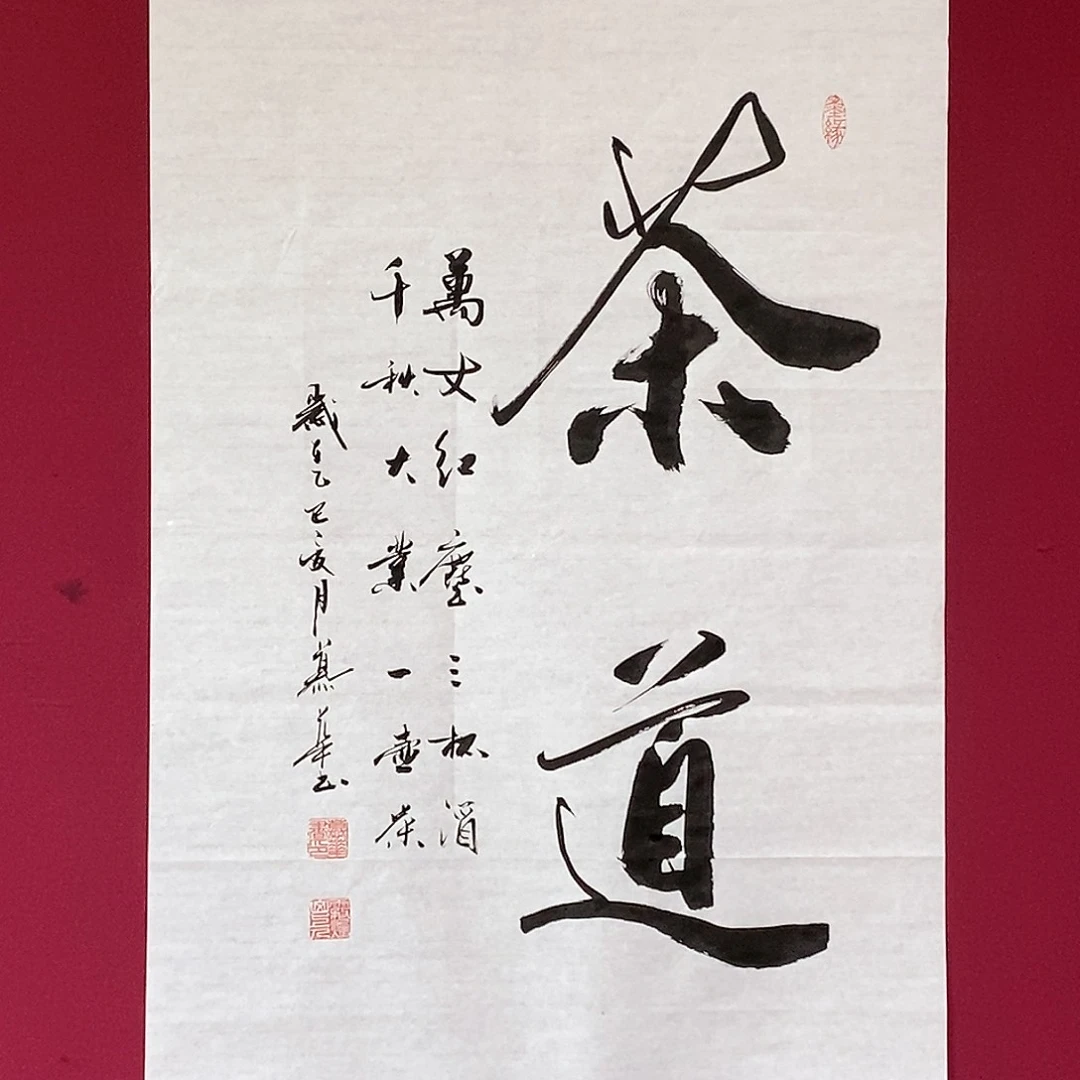 茶道
萬丈紅塵三杯酒
千秋大業一壺茶
歲在乙巳夏月慕華書